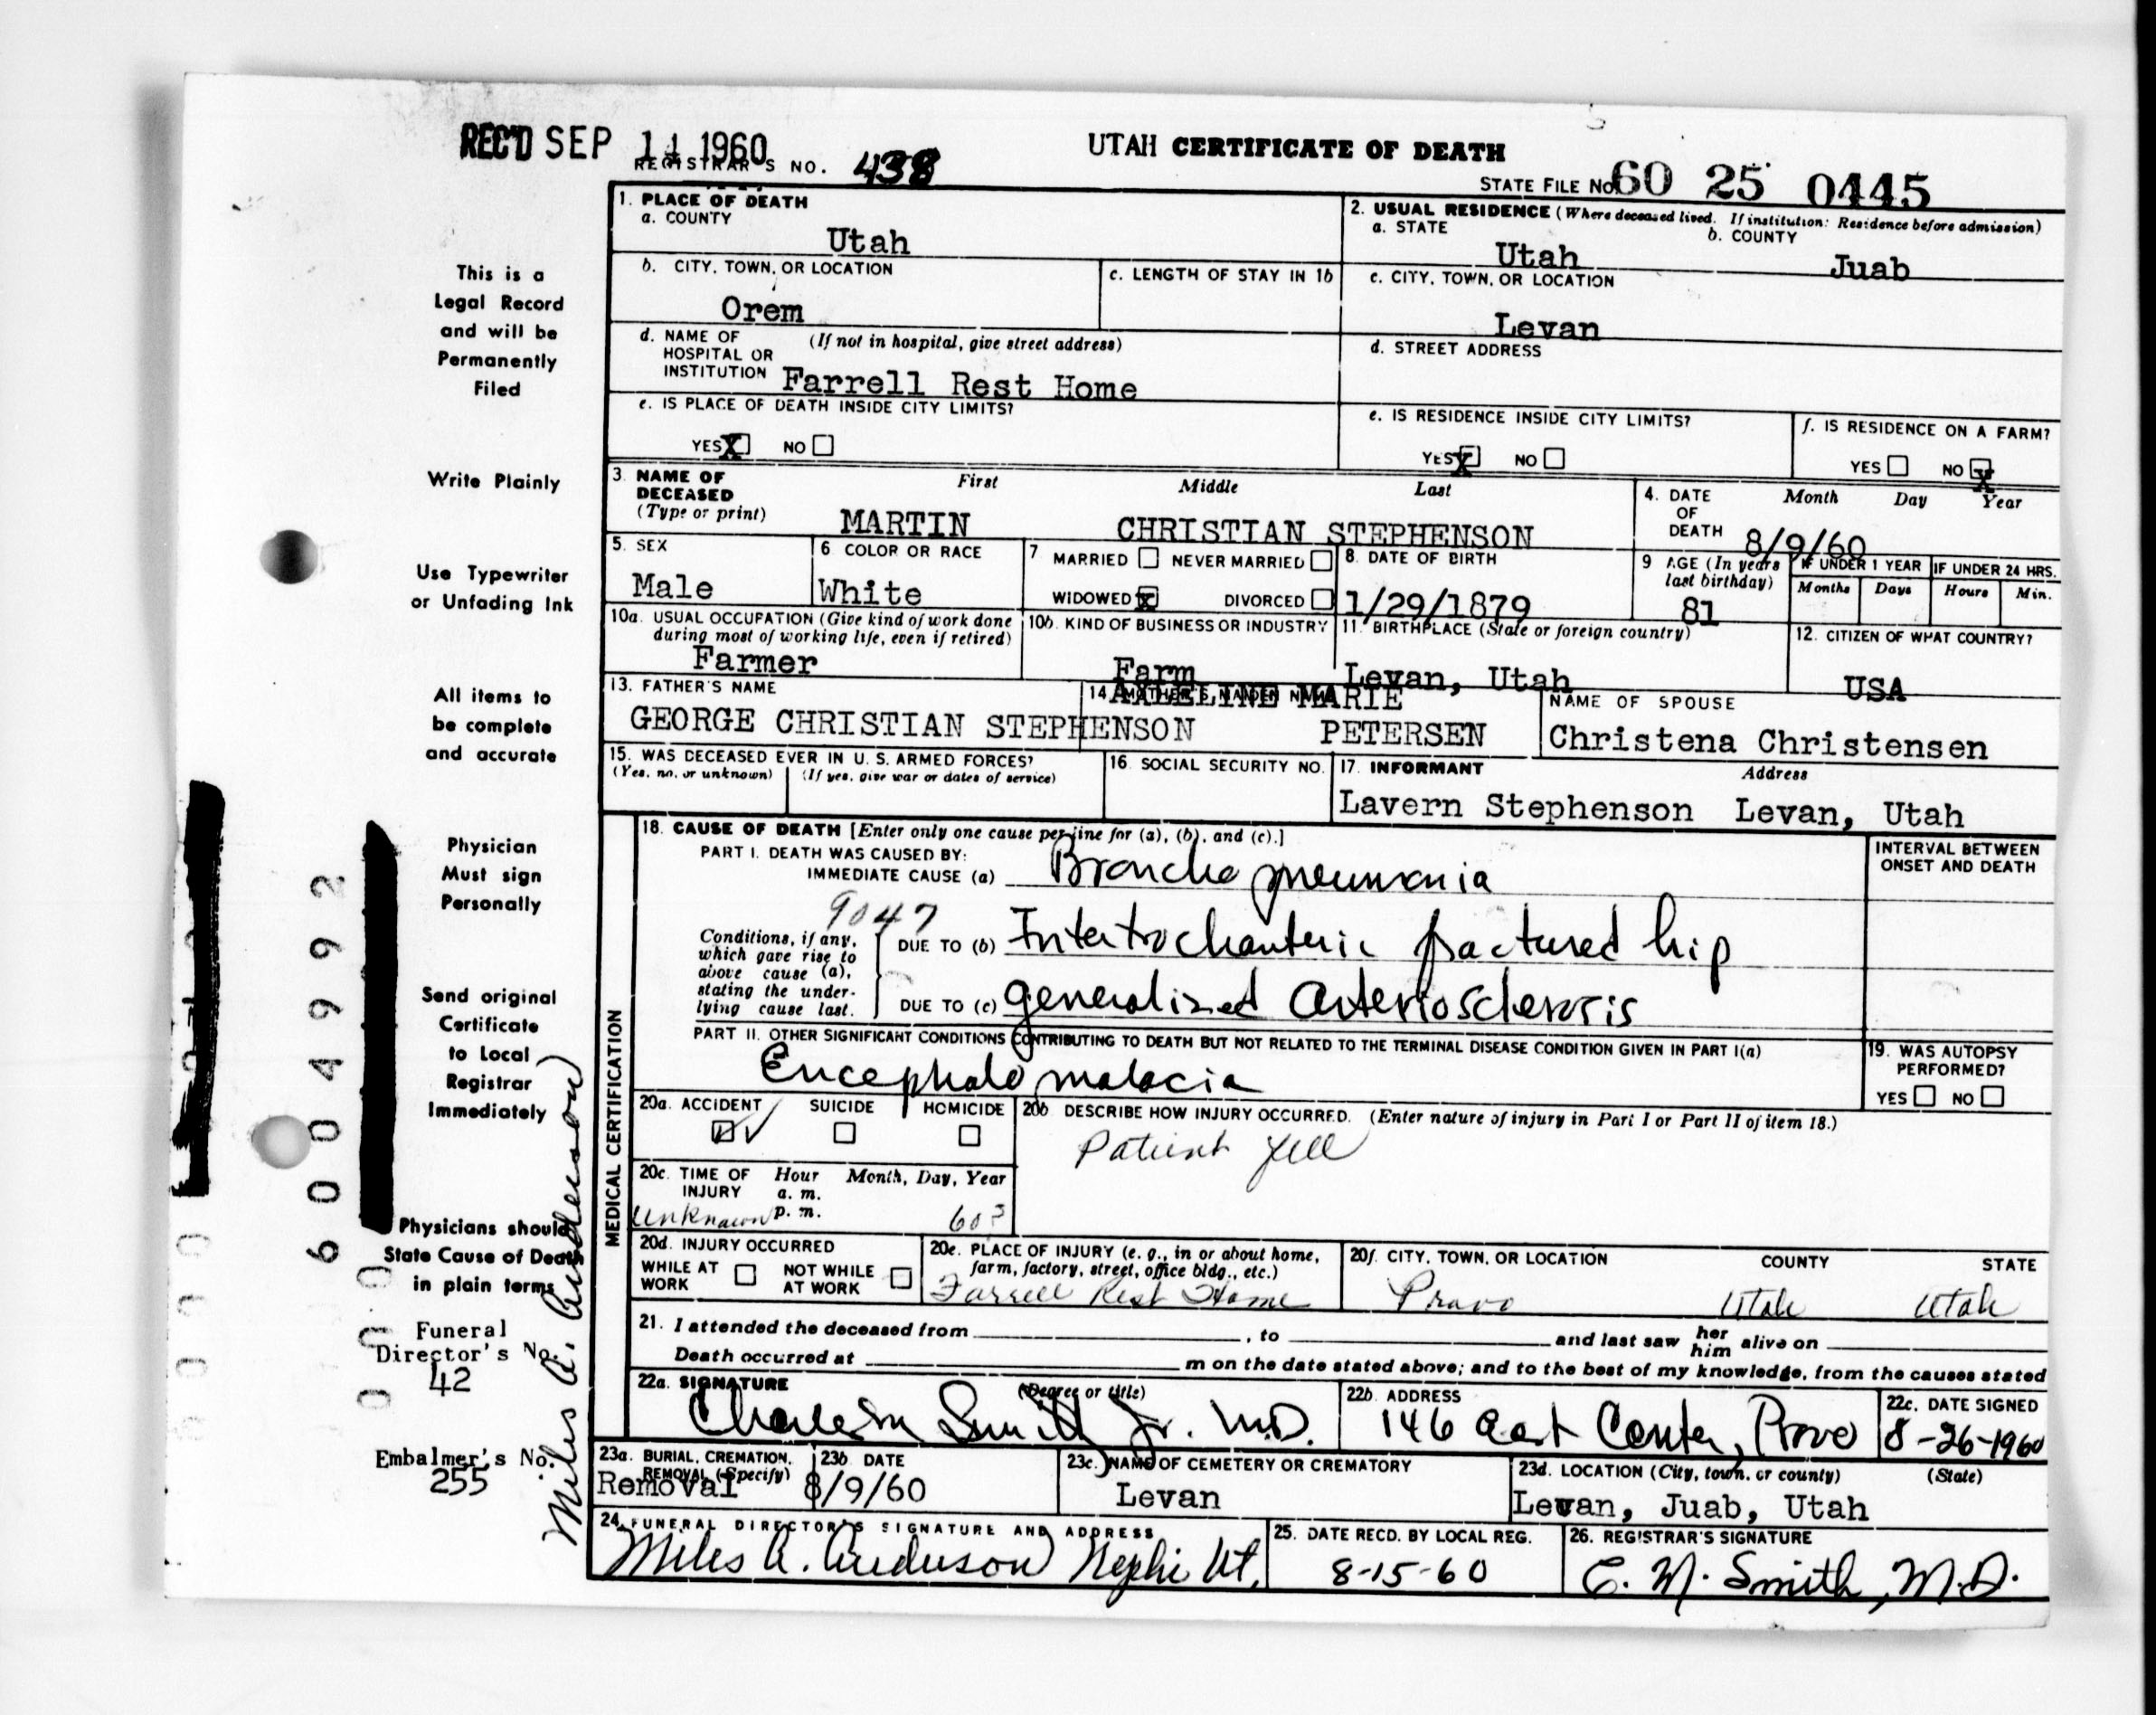 REC'D SEP 14 1960
REGISTRAR'S NO. 438
UTAH CERTIFICATE OF DEATH
STATE FILE NO. 60 25 0445
This is a
Legal Record
and will be
Permanently
Filed
Write Plainly
Use Typewriter
or Unfading Ink
All items to
be complete
and accurate
Physician
Must sign
Personally
Send original
Certificate
to Local
Registrar
Immediately
Physicians should
State Cause of Death
in plain terms
Funeral
Director's No.
42
Embalmer's No.
255
Miles A. Anderson
6004992
1. PLACE OF DEATH
a. COUNTY
Utah
b. CITY, TOWN, OR LOCATION
Orem
c. LENGTH OF STAY IN 1b
d. NAME OF HOSPITAL OR INSTITUTION (If not in hospital, give street address)
Farrell Rest Home
e. IS PLACE OF DEATH INSIDE CITY LIMITS?
YES X NO
2. USUAL RESIDENCE (Where deceased lived. If institution: Residence before admission)
a. STATE
Utah
b. COUNTY
Juab
c. CITY, TOWN, OR LOCATION
Levan
d. STREET ADDRESS
e. IS RESIDENCE INSIDE CITY LIMITS?
YES X NO
f. IS RESIDENCE ON A FARM?
YES NO X
3. NAME OF DECEASED (Type or print)
First Middle Last
MARTIN CHRISTIAN STEPHENSON
4. DATE OF DEATH Month Day Year
8/9/60
5. SEX
Male
6 COLOR OR RACE
White
7 MARRIED NEVER MARRIED
WIDOWED X DIVORCED
8. DATE OF BIRTH
1/29/1879
9 AGE (In years last birthday)
81
IF UNDER 1 YEAR
Months Days
IF UNDER 24 HRS.
Hours Min.
10a. USUAL OCCUPATION (Give kind of work done during most of working life, even if retired)
Farmer
10b. KIND OF BUSINESS OR INDUSTRY
Farm
11. BIRTHPLACE (State or foreign country)
Levan, Utah
12. CITIZEN OF WHAT COUNTRY?
USA
13. FATHER'S NAME
GEORGE CHRISTIAN STEPHENSON
14. MOTHER'S MAIDEN NAME
MARIE
PETERSEN
NAME OF SPOUSE
Christena Christensen
15. WAS DECEASED EVER IN U. S. ARMED FORCES?
(Yes, no, or unknown) (If yes, give war or dates of service)
16. SOCIAL SECURITY NO.
17. INFORMANT Address
Lavern Stephenson Levan, Utah
MEDICAL CERTIFICATION
18. CAUSE OF DEATH [Enter only one cause per line for (a), (b), and (c).]
PART I. DEATH WAS CAUSED BY:
IMMEDIATE CAUSE (a) Broncho pneumonia
INTERVAL BETWEEN ONSET AND DEATH
9047
Conditions, if any, which gave rise to above cause (a), stating the underlying cause last.
DUE TO (b) Intertrochanteric fractured hip
DUE TO (c) generalized arteriosclerosis
PART II. OTHER SIGNIFICANT CONDITIONS CONTRIBUTING TO DEATH BUT NOT RELATED TO THE TERMINAL DISEASE CONDITION GIVEN IN PART I(a)
Encephalomalacia
19. WAS AUTOPSY PERFORMED?
YES NO
20a. ACCIDENT SUICIDE HOMICIDE
20b DESCRIBE HOW INJURY OCCURRED. (Enter nature of injury in Part I or Part II of item 18.)
Patient fell
20c. TIME OF INJURY Hour Month, Day, Year
a. m.
p. m.
Unknown 60?
20d. INJURY OCCURRED
WHILE AT WORK NOT WHILE AT WORK
20e. PLACE OF INJURY (e. g., in or about home, farm, factory, street, office bldg., etc.)
Farrell Rest Home
20f. CITY, TOWN, OR LOCATION COUNTY STATE
Provo Utah Utah
21. I attended the deceased from , to and last saw her him alive on
Death occurred at m on the date stated above; and to the best of my knowledge, from the causes stated
22a. SIGNATURE (Degree or title)
Smith Jr. M.D.
22b. ADDRESS
146 East Center, Provo
22c. DATE SIGNED
8-26-1960
23a. BURIAL, CREMATION, REMOVAL (Specify)
Removal
23b. DATE
8/9/60
23c. NAME OF CEMETERY OR CREMATORY
Levan
23d. LOCATION (City, town, or county) (State)
Levan, Juab, Utah
24. FUNERAL DIRECTOR'S SIGNATURE AND ADDRESS
Miles A. Anderson Nephi Ut.
25. DATE RECD. BY LOCAL REG.
8-15-60
26. REGISTRAR'S SIGNATURE
E. N. Smith, M.D.